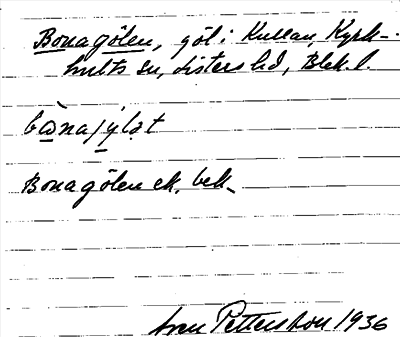 Bonagölen, göl i Kullan, Kyrk-
hults sn, Listers hd, Blek. l.
bò̲naj̲y̲lət
Bonagölen ek. bek.
Sven Pettersson 1936